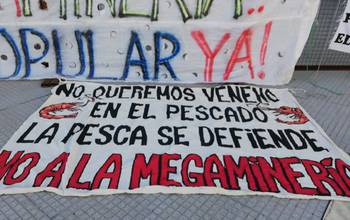 OPULAR YA!
NO QUEREMOS VENENO
EN EL PESCADO
LA PESCA SE DEFIENDE
NO A LA MEGAMINERÍA